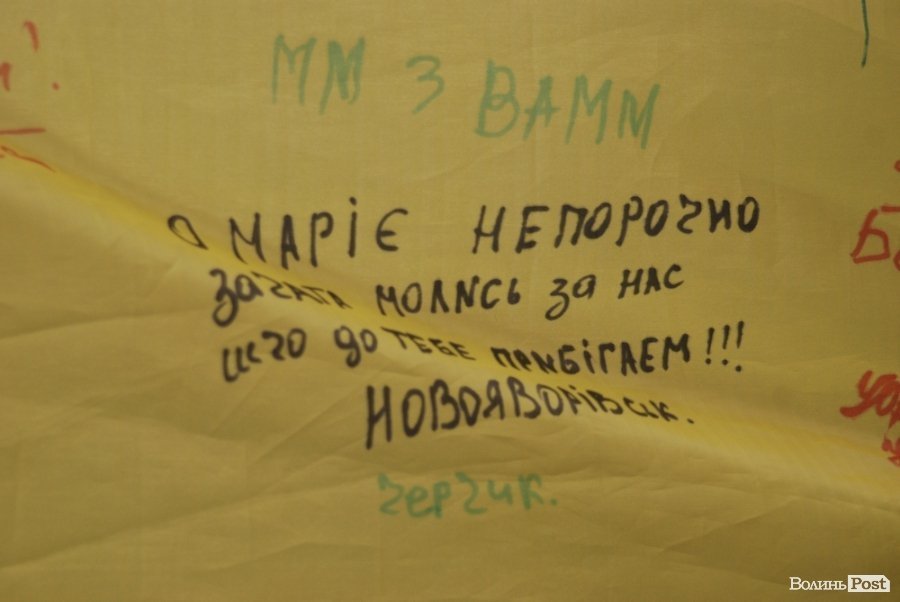 МИ З ВАМИ
О МАРІЄ НЕПОРОЧНО
ЗАЧАТА МОЛИСЬ ЗА НАС
ЩО ДО ТЕБЕ ПРИБІГАЄМ!!!
НОВОЯВОРІВСЬК.
Волинь Post